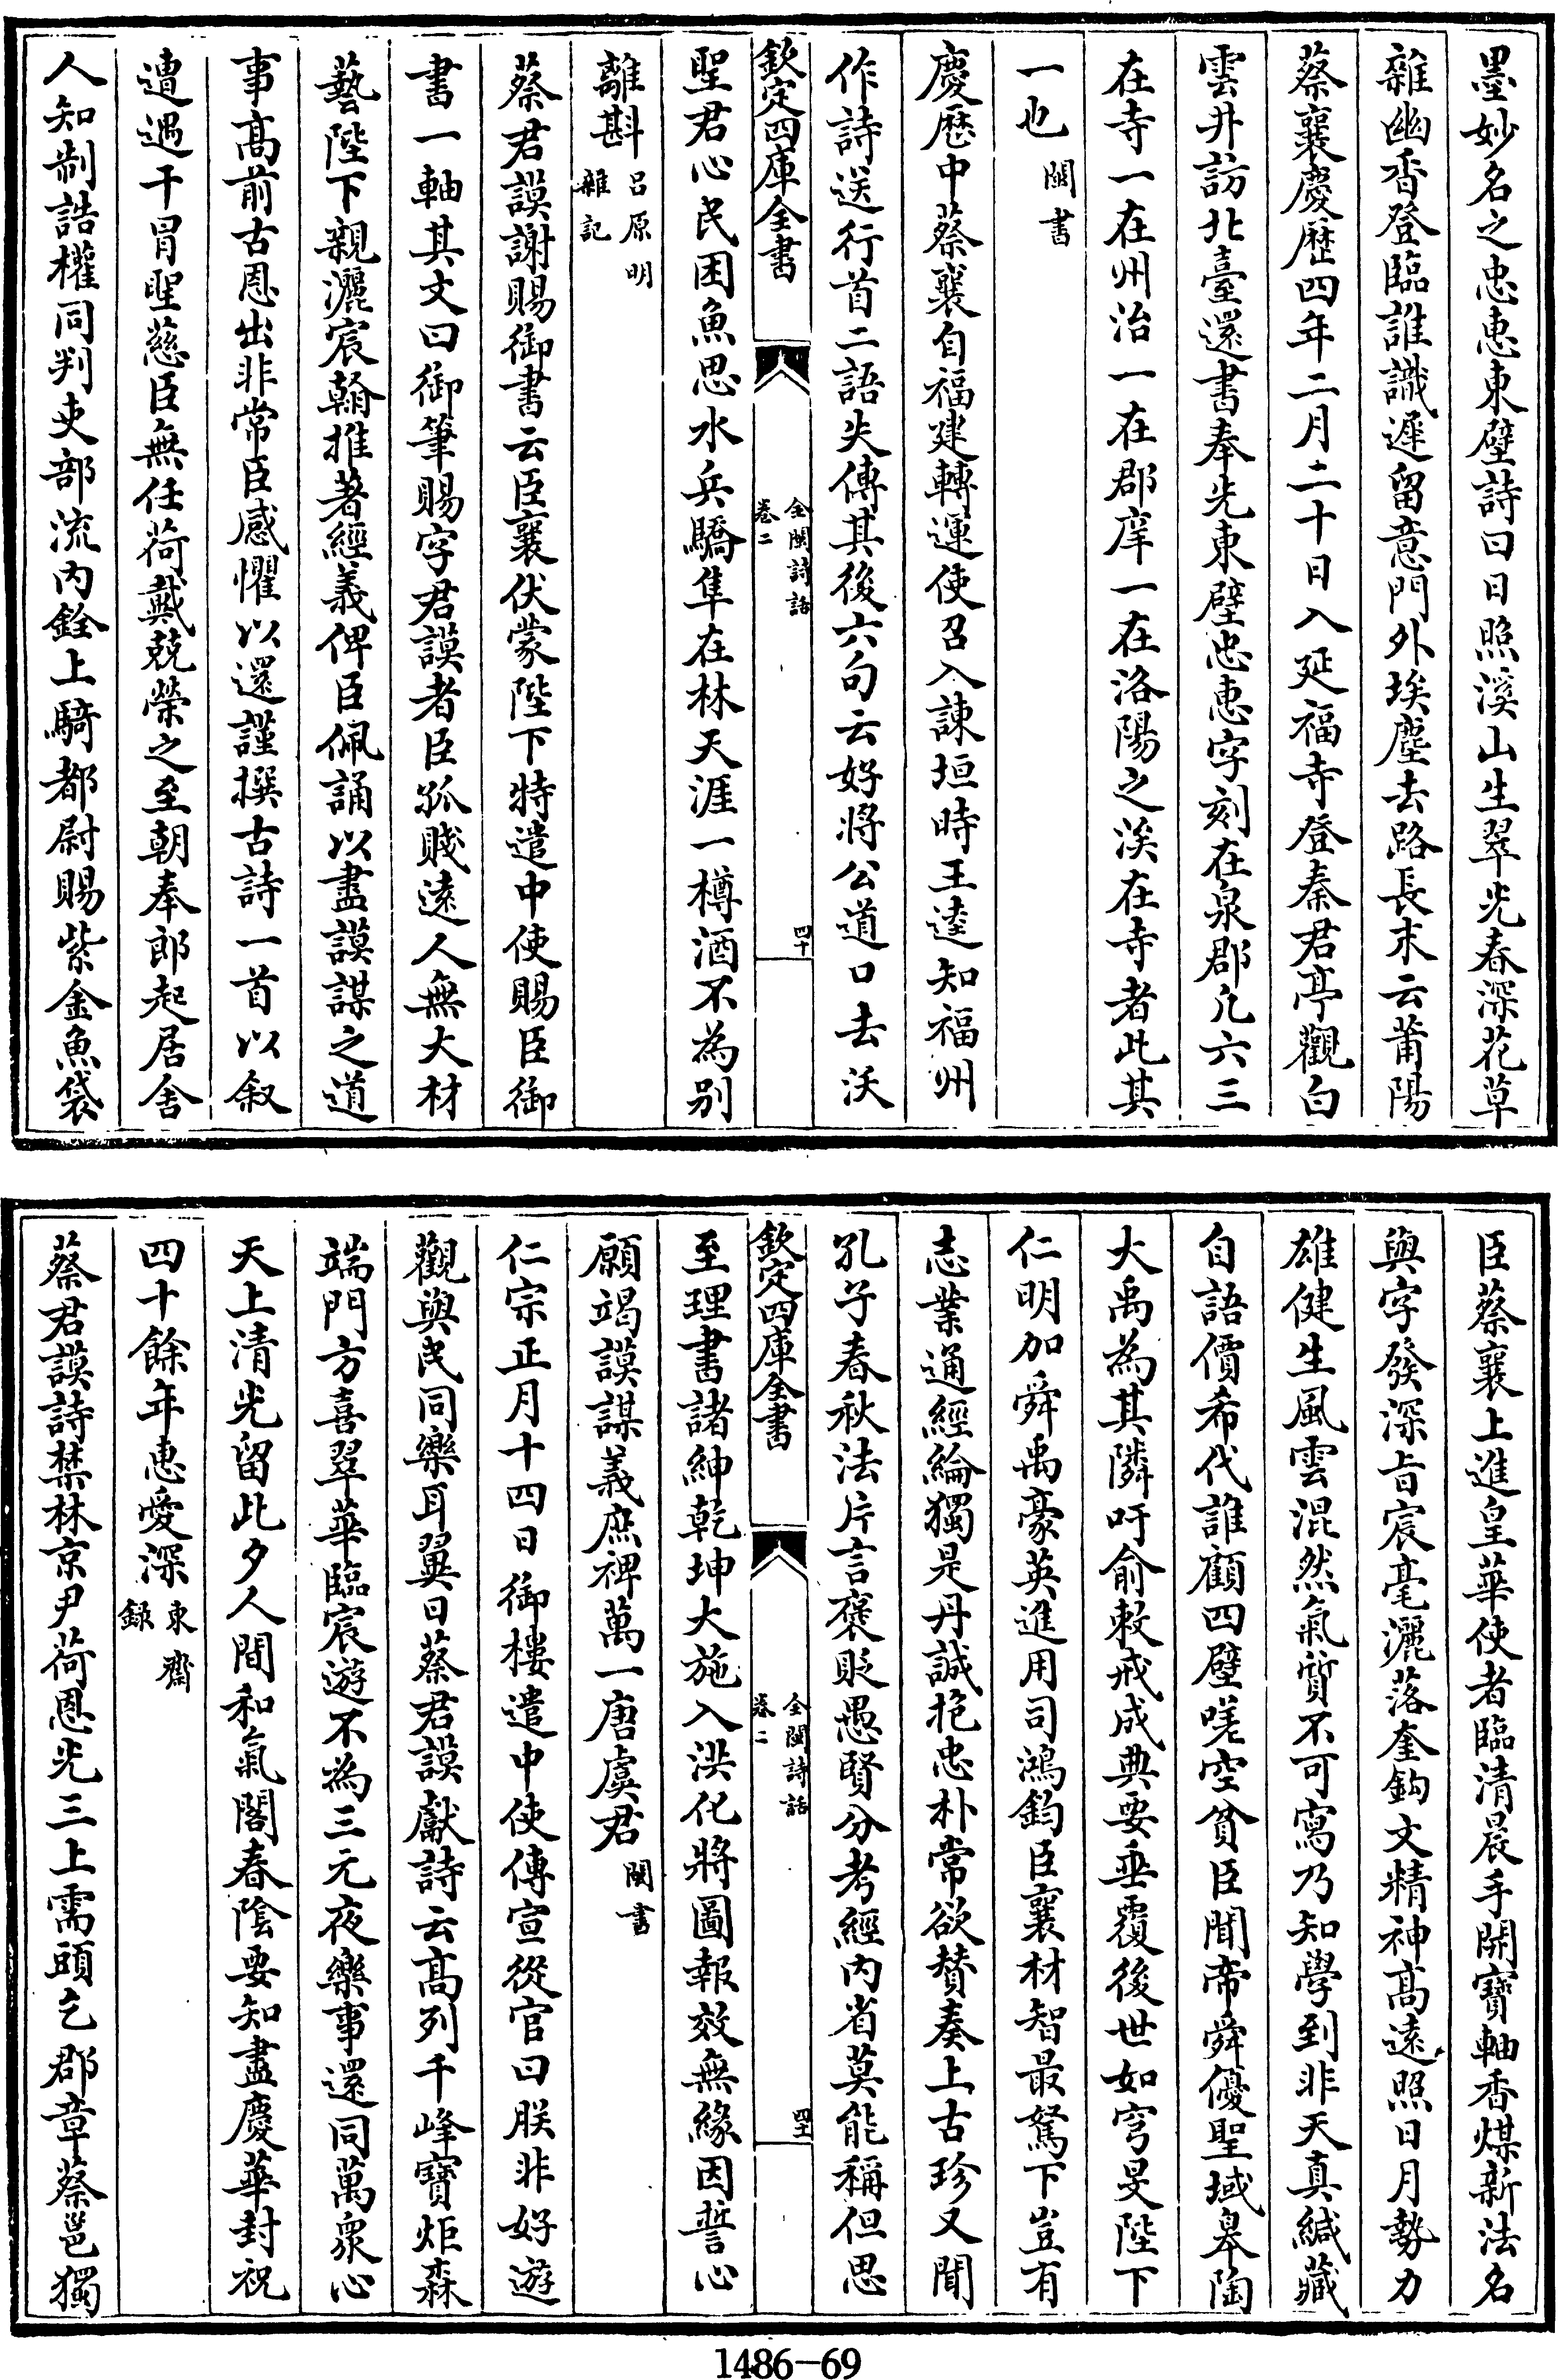 墨妙名之忠惠東壁詩曰日照溪山生翠光春深花草
雜幽香登臨誰識遲留意門外埃塵去路長末云莆陽
蔡襄慶歷四年二月二十日入延福寺登秦君亭觀白
雲井訪北臺還書奉先東壁忠惠字刻在泉郡凡六三
在寺一在州治一在郡庠一在洛陽之涘在寺者此其
一也閩書
慶歷中蔡襄自福建轉運使召入諫垣時王逵知福州
作詩送行首二語失傳其後六句云好將公道口去沃
欽定四庫全書
全閩詩話
卷二
四十
聖君心民困魚思水兵驕隼在林天涯一樽酒不為别
離斟呂原明
雜記
蔡君謨謝賜御書云臣襄伏蒙陛下特遣中使賜臣御
書一軸其文曰御筆賜字君謨者臣孤賤逺人無大材
藝陛下親灑宸翰推著經義俾臣佩誦以盡謨謀之道
事髙前古恩出非常臣感懼以還謹撰古詩一首以叙
遭遇干冒聖慈臣無任荷戴兢榮之至朝奉郎起居舍
人知制誥權同判吏部流内銓上騎都尉賜紫金魚袋
臣蔡襄上進皇華使者臨清晨手開寶軸香煤新法名
與字發深旨宸毫灑落奎鈎文精神髙逺照日月勢力
雄健生風雲混然氣質不可寫乃知學到非天真緘藏
自語價希代誰顧四壁嗟空貧臣聞帝舜優聖域皋陶
大禹為其隣吁俞敕戒成典要垂覆後世如穹旻陛下
仁明加舜禹豪英進用司鴻鈞臣襄材智最駑下豈有
志業通經綸獨是丹誠抱忠朴常欲賛奏上古珍又聞
孔子春秋法片言褒貶愚賢分考經内省莫能稱但思
欽定四庫全書
全閩詩話
卷二
四十一
至理書諸紳乾坤大施入洪化將圖報效無緣因誓心
願竭謨謀義庶裨萬一唐虞君閩書
仁宗正月十四日御樓遣中使傳宣從官曰朕非好遊
觀與民同樂耳翼日蔡君謨獻詩云髙列千峰寶炬森
端門方喜翠華臨宸遊不為三元夜樂事還同萬衆心
天上清光留此夕人間和氣閣春隂要知盡慶華封祝
四十餘年惠愛深東齋
録
蔡君謨詩禁林京尹荷恩光三上需頭乞郡章蔡邕獨
1486-69